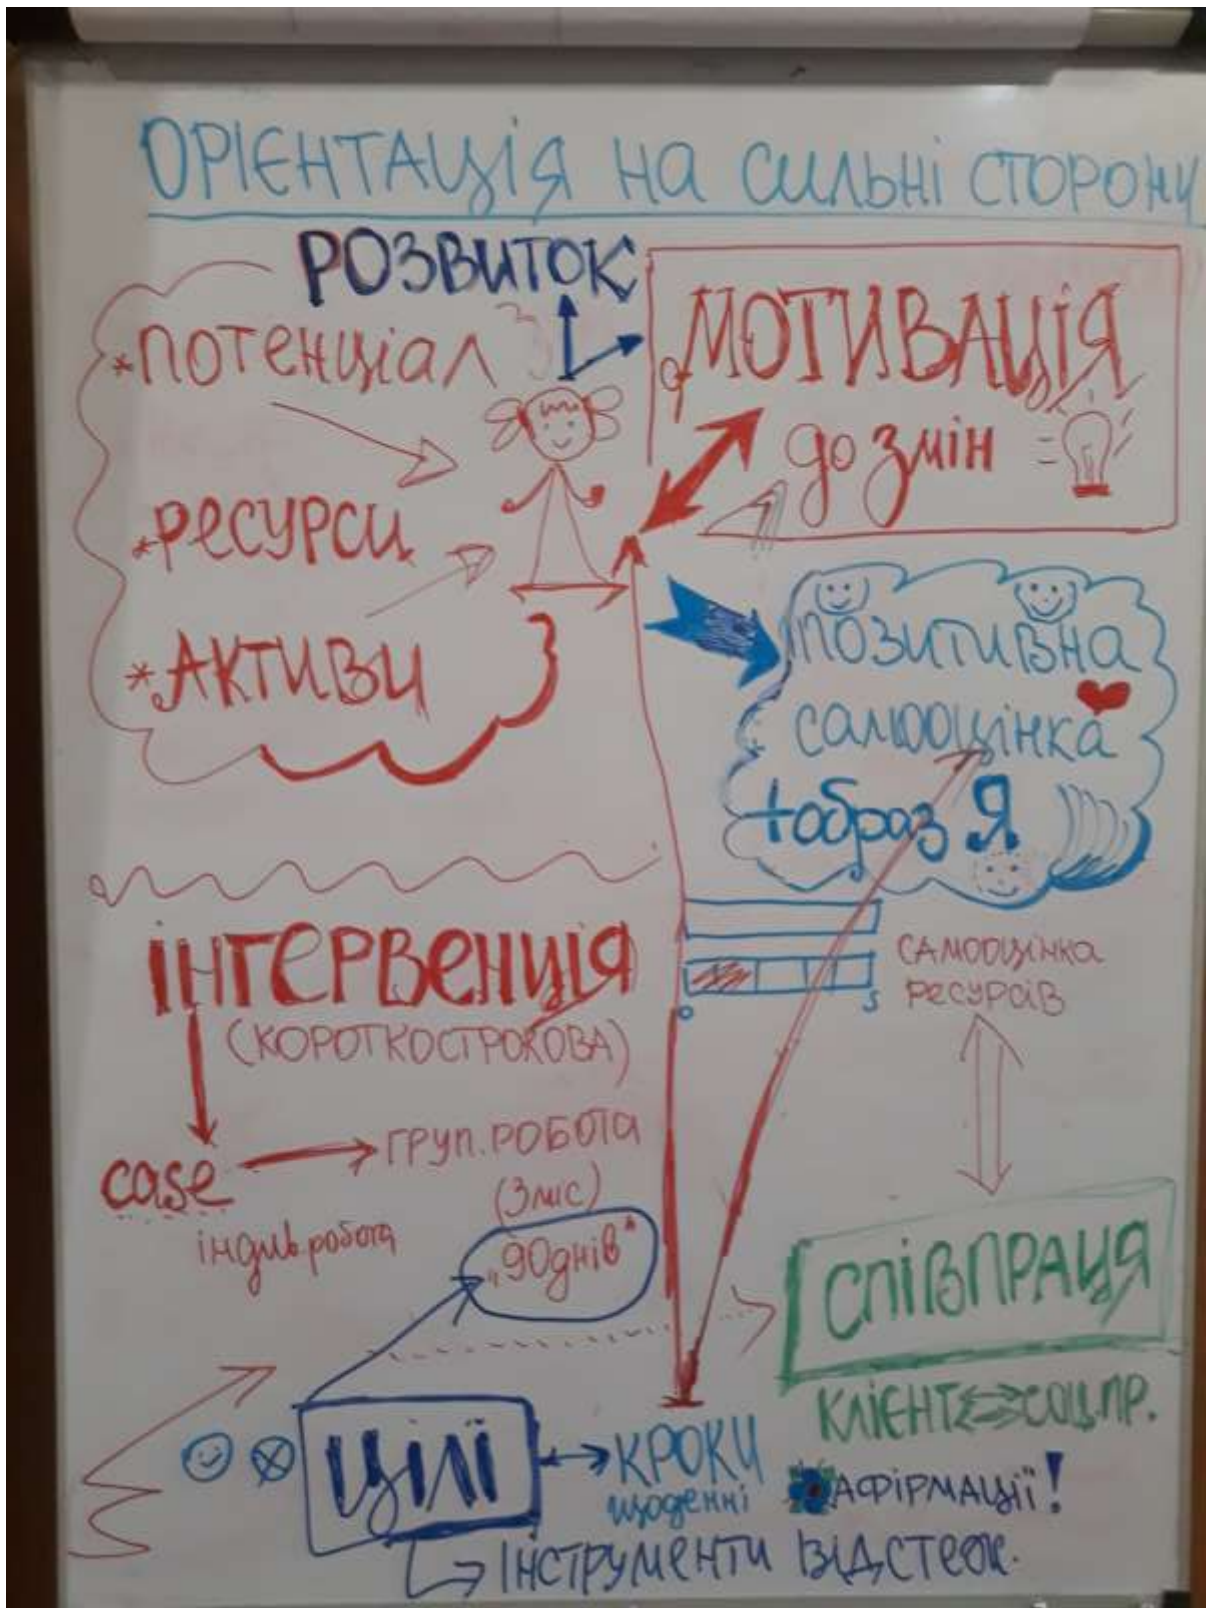 ОРІЄНТАЦІЯ НА СИЛЬНІ СТОРОНИ
РОЗВИТОК
*ПОТЕНЦІАЛ
*РЕСУРСИ
*АКТИВИ
МОТИВАЦІЯ
до змін
ПОЗИТИВНА
самооцінка
+образ Я
САМООЦІНКА
РЕСУРСІВ
0 5
ІНТЕРВЕНЦІЯ
(КОРОТКОСТРОКОВА)
case
ГРУП. РОБОТА
індив. робота
(3 міс)
„90 днів"
СПІВПРАЦЯ
КЛІЄНТ СОЦ.ПР.
ЦІЛІ
КРОКИ
щоденні
АФІРМАЦІЇ!
ІНСТРУМЕНТИ ВІДСТЕЖ.